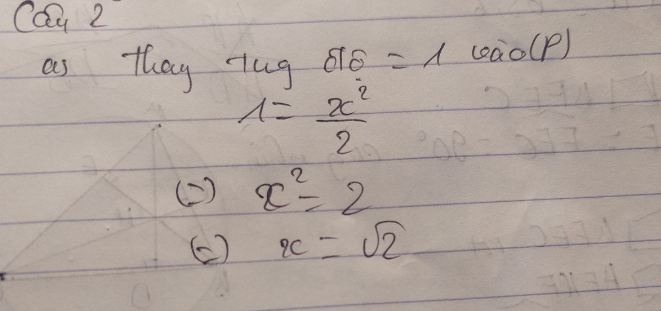 Câu 2
a) Thay tug độ = 1 vào (P)
1 = x²/2
(=) x² = 2
(=) x = √2